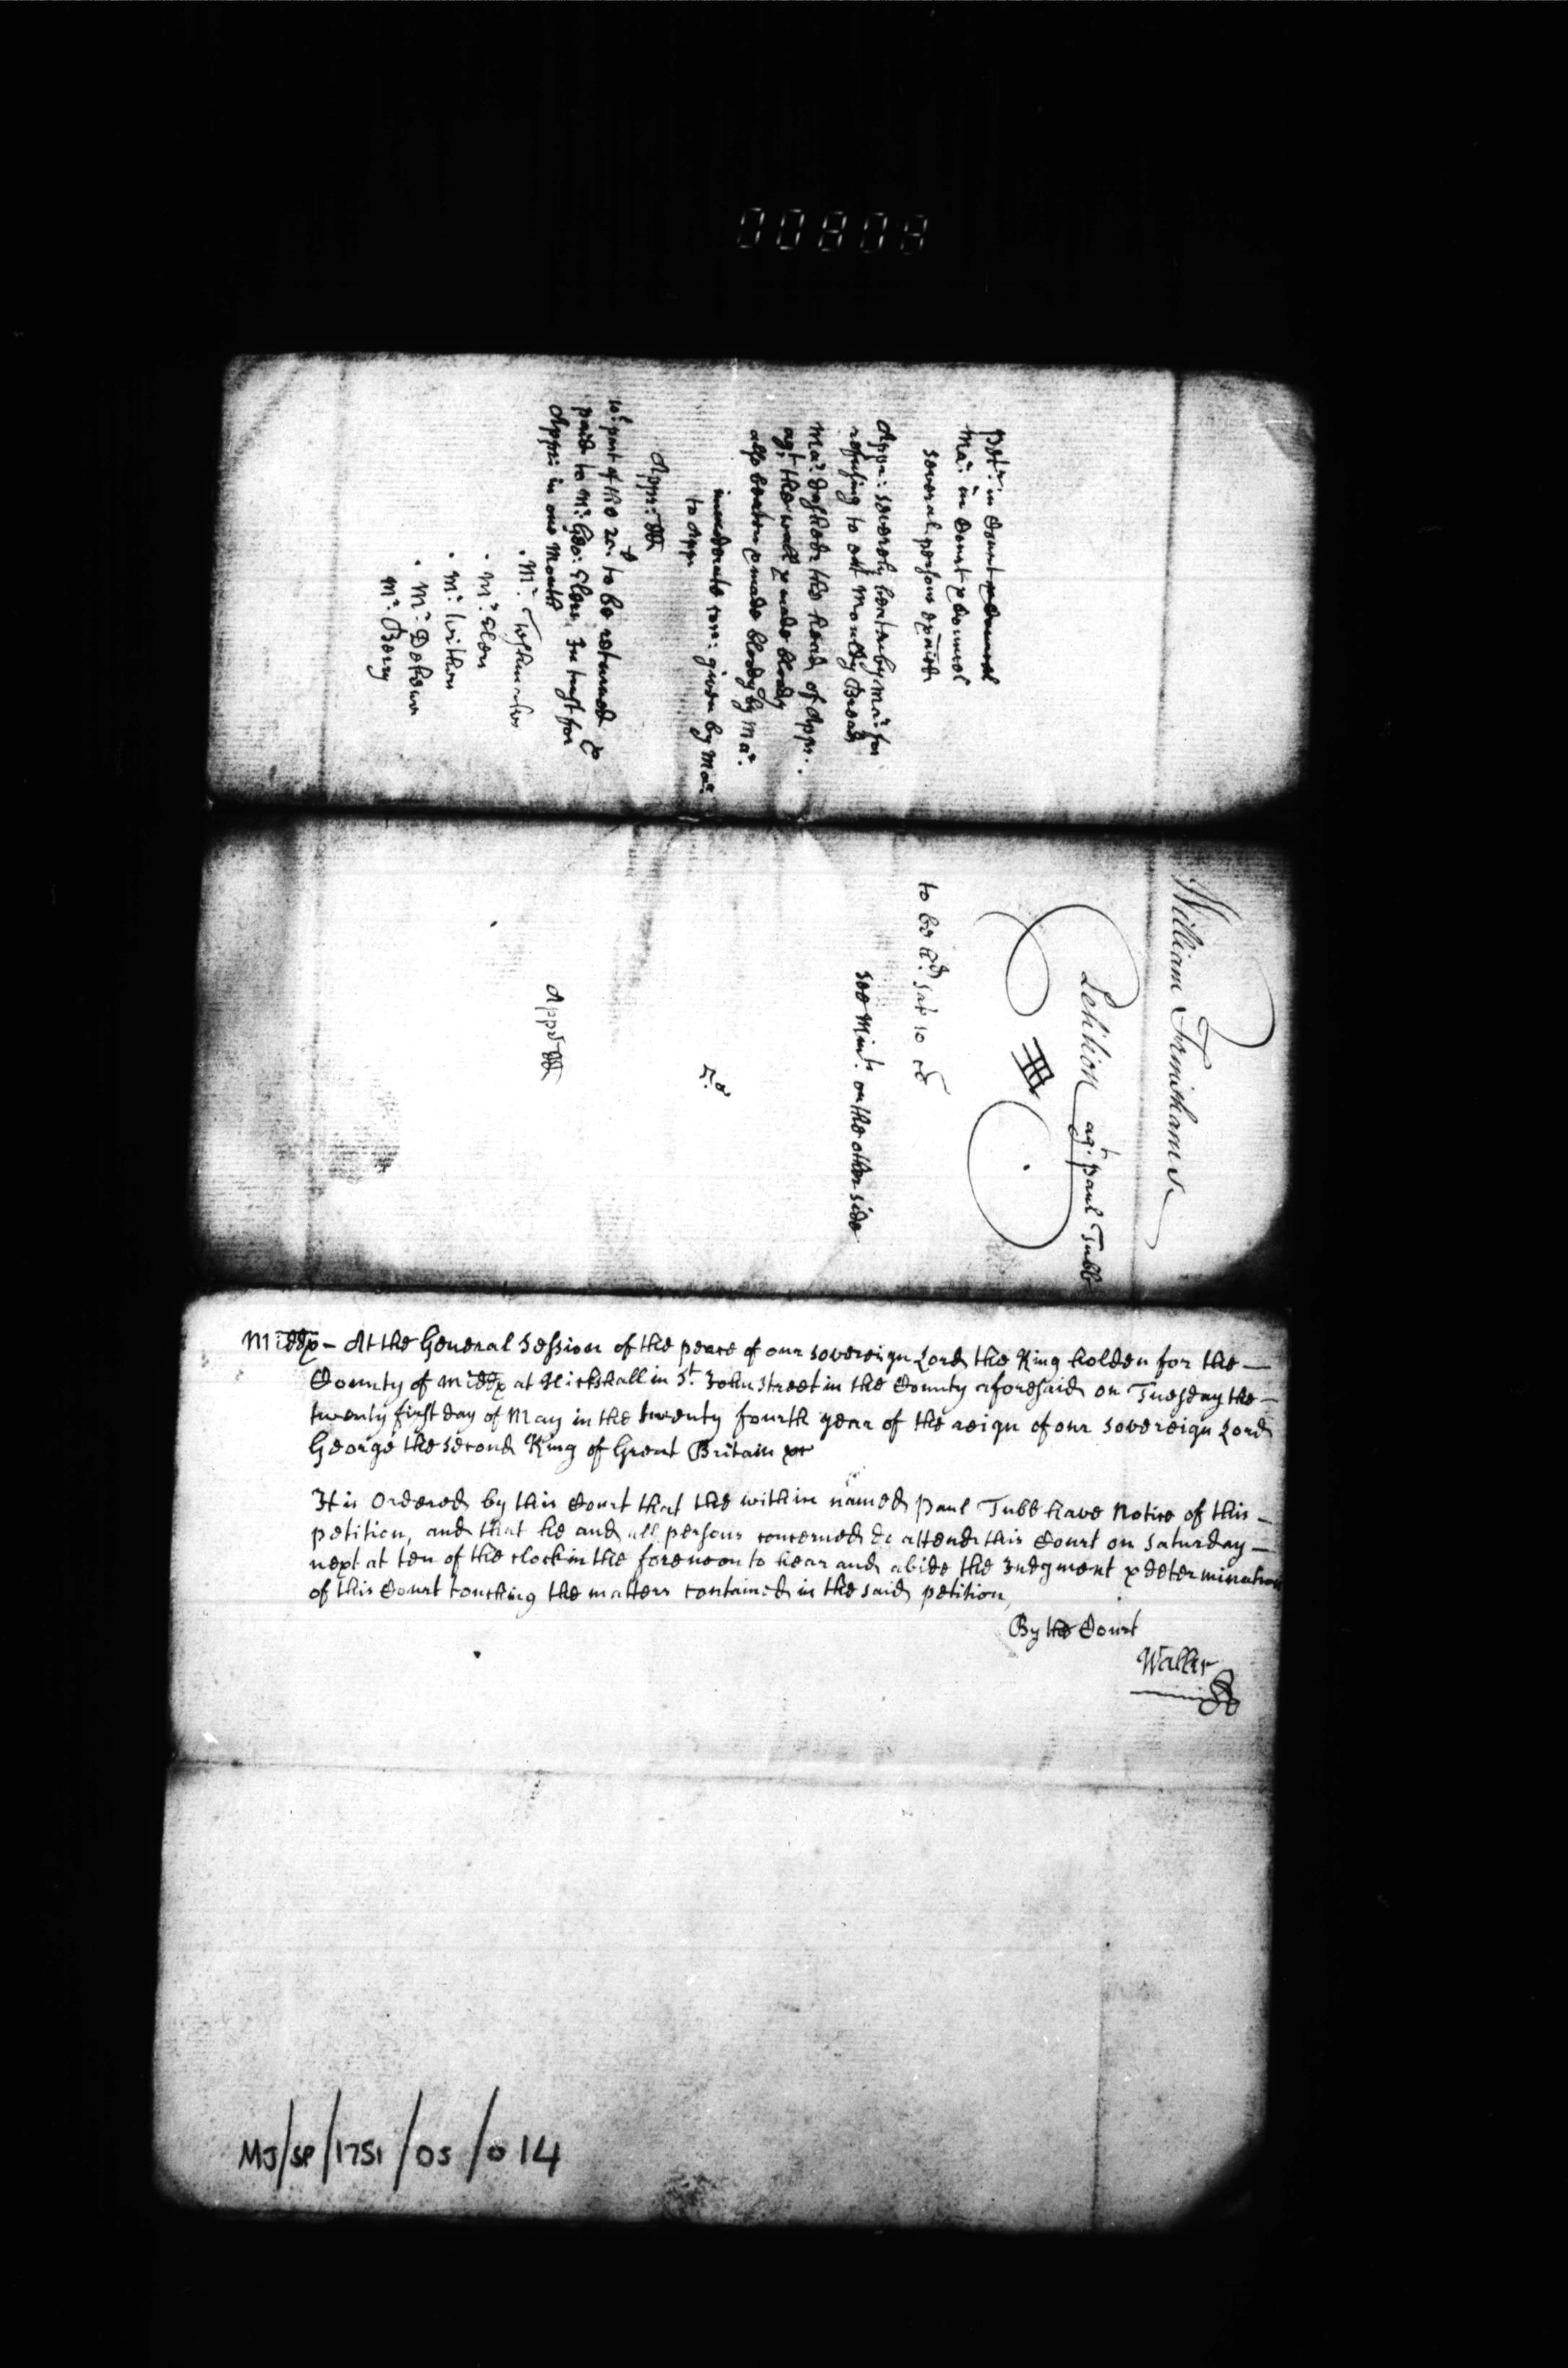 00808
Petr. in Court & Councel
Mar. in Court & Councel
several persons exaied
Appr: severely beaten by Mar. for
refusing to eat Mouldy Bread
Mar. dashed the head of Appr.
agt. the wall & made bloody
also beaten & made bloody by Mar.
imoderate corr: given by Mar.
to Appr
Appr: 
10l. part of the 20l. to be returned &
paid to Mr. Geo: Elers, In trust for
Appr: in one Month
Mr.
Mr. Elers
Mr. Withers
Mr.
Mr. Berry
William
Petition agt. Paul Tubb
to be hd. Sat 10 Cl
see Mints. on the other side
Appr
Middx - At the General Session of the peace of our Sovereign Lord the King holden for the -
County of Middx at Hickshall in St. John Street in the County aforesaid on Tuesday the -
twenty first day of May in the twenty fourth year of the reign of our Sovereign Lord
George the Second King of Great Britain &c
It is Ordered by this Court that the within named Paul Tubb have Notice of this -
petition, and that he and all persons concerned do attend this Court on Saturday -
next at ten of the clock in the forenoon to hear and abide the Judgment & determination
of this Court touching the matters contained in the said petition,
By the Court
Waller
MJ/SP/1751/05/014